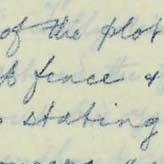 of the plot
fence &
stating